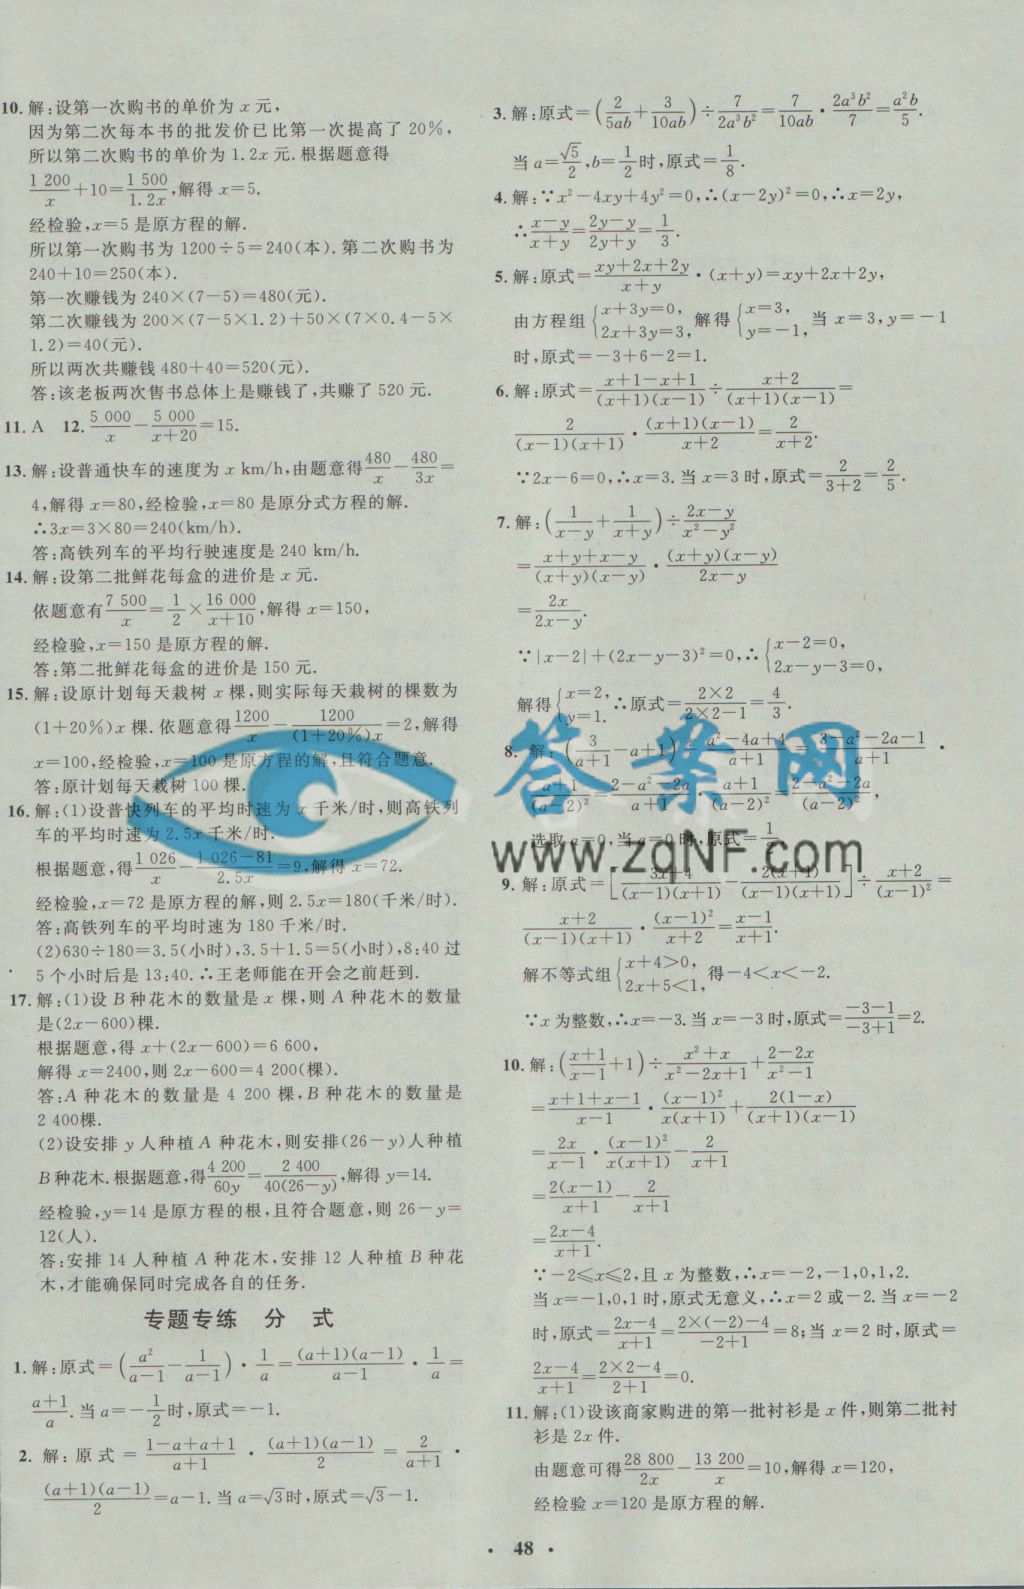 10. 解:设第一次购书的单价为 x 元,
因为第二次每本书的批发价已比第一次提高了 20%,
所以第二次购书的单价为 1.2x 元.根据题意得
1 200/x+10=1 500/1.2x,解得 x=5.
经检验,x=5 是原方程的解.
所以第一次购书为 1200÷5=240(本).第二次购书为
240+10=250(本).
第一次赚钱为 240×(7-5)=480(元).
第二次赚钱为 200×(7-5×1.2)+50×(7×0.4-5×
1.2)=40(元).
所以两次共赚钱 480+40=520(元).
答:该老板两次售书总体上是赚钱了,共赚了 520 元.
11. A 12. 5 000/x-5 000/(x+20)=15.
13. 解:设普通快车的速度为 x km/h,由题意得480/x-480/3x=
4,解得 x=80,经检验,x=80 是原分式方程的解.
∴3x=3×80=240(km/h).
答:高铁列车的平均行驶速度是 240 km/h.
14. 解:设第二批鲜花每盒的进价是 x 元.
依题意有7 500/x=1/2×16 000/(x+10),解得 x=150,
经检验,x=150 是原方程的解.
答:第二批鲜花每盒的进价是 150 元.
15. 解:设原计划每天栽树 x 棵,则实际每天栽树的棵数为
(1+20%)x 棵.依题意得1200/x-1200/(1+20%)x=2,解得
x=100,经检验,x=100 是原方程的解,且符合题意.
答:原计划每天栽树 100 棵.
16. 解:(1)设普快列车的平均时速为 x 千米/时,则高铁列
车的平均时速为 2.5x 千米/时.
根据题意,得1 026/x-(1 026-81)/2.5x=9,解得 x=72.
经检验,x=72 是原方程的解,则 2.5x=180(千米/时).
答:高铁列车的平均时速为 180 千米/时.
(2)630÷180=3.5(小时),3.5+1.5=5(小时),8:40 过
5 个小时后是 13:40.∴王老师能在开会之前赶到.
17. 解:(1)设 B 种花木的数量是 x 棵,则 A 种花木的数量
是(2x-600)棵.
根据题意,得 x+(2x-600)=6 600,
解得 x=2400,则 2x-600=4 200(棵).
答:A 种花木的数量是 4 200 棵,B 种花木的数量是
2 400棵.
(2)设安排 y 人种植 A 种花木,则安排(26-y)人种植
B 种花木.根据题意,得4 200/60y=2 400/40(26-y),解得 y=14.
经检验,y=14 是原方程的根,且符合题意,则 26-y=
12(人).
答:安排 14 人种植 A 种花木,安排 12 人种植 B 种花
木,才能确保同时完成各自的任务.
专题专练 分 式
1. 解:原式=(a²/(a-1)-1/(a-1))·1/a=(a+1)(a-1)/(a-1)·1/a=
(a+1)/a.当 a=-1/2时,原式=-1.
2. 解:原式=(1-a+a+1)/(a+1)·(a+1)(a-1)/2=2/(a+1)·
(a+1)(a-1)/2=a-1.当 a=√3时,原式=√3-1.
3. 解:原式=(2/5ab+3/10ab)÷7/2a³b²=7/10ab·2a³b²/7=a²b/5.
当 a=√5/2,b=1/2时,原式=1/8.
4. 解:∵x²-4xy+4y²=0,∴(x-2y)²=0,∴x=2y,
∴(x-y)/(x+y)=(2y-y)/(2y+y)=1/3.
5. 解:原式=(xy+2x+2y)/(x+y)·(x+y)=xy+2x+2y,
由方程组{x+3y=0, 2x+3y=3, 解得{x=3, y=-1, 当 x=3,y=-1
时,原式=-3+6-2=1.
6. 解:原式=(x+1-x+1)/(x+1)(x-1)÷(x+2)/(x+1)(x-1)=
2/(x-1)(x+1)·(x+1)(x-1)/(x+2)=2/(x+2).
∵2x-6=0,∴x=3.当 x=3 时,原式=2/(3+2)=2/5.
7. 解:(1/(x-y)+1/(x+y))÷(2x-y)/(x²-y²)
=(x+y+x-y)/(x+y)(x-y)·(x+y)(x-y)/(2x-y)
=2x/(2x-y).
∵|x-2|+(2x-y-3)²=0,∴{x-2=0, 2x-y-3=0,
解得{x=2, y=1. ∴原式=2×2/(2×2-1)=4/3.
8. 解:(3/(a+1)-a+1)÷(a²-4a+4)/(a+1)=(3-a²-2a-1)/(a+1)·
(a+1)/(a-2)²=(2-a²-2a)/(a+1)·(a+1)/(a-2)²=(2-a²-2a)/(a-2)²,
选取 a=0,当 a=0时,原式=1/2.
9. 解:原式=[(3x+4)/(x-1)(x+1)-2(x+1)/(x-1)(x+1)]÷(x+2)/(x-1)²=
(x+2)/(x-1)(x+1)·(x-1)²/(x+2)=(x-1)/(x+1).
解不等式组{x+4>0, 2x+5<1, 得-4<x<-2.
∵x 为整数,∴x=-3.当 x=-3 时,原式=(-3-1)/(-3+1)=2.
10. 解:((x+1)/(x-1)+1)÷(x²+x)/(x²-2x+1)+(2-2x)/(x²-1)
=(x+1+x-1)/(x-1)·(x-1)²/x(x+1)+2(1-x)/(x+1)(x-1)
=2x/(x-1)·(x-1)²/x(x+1)-2/(x+1)
=2(x-1)/(x+1)-2/(x+1)
=(2x-4)/(x+1).
∵-2⩽x⩽2,且 x 为整数,∴x=-2,-1,0,1,2.
当 x=-1,0,1 时,原式无意义,∴x=2 或-2.当 x=-2
时,原式=(2x-4)/(x+1)=(2×(-2)-4)/(-2+1)=8;当 x=2 时,原式=
(2x-4)/(x+1)=(2×2-4)/(2+1)=0.
11. 解:(1)设该商家购进的第一批衬衫是 x 件,则第二批衬
衫是 2x 件.
由题意可得28 800/2x-13 200/x=10,解得 x=120,
经检验 x=120 是原方程的解.
答案网
www.zqNF.com
• 48 •